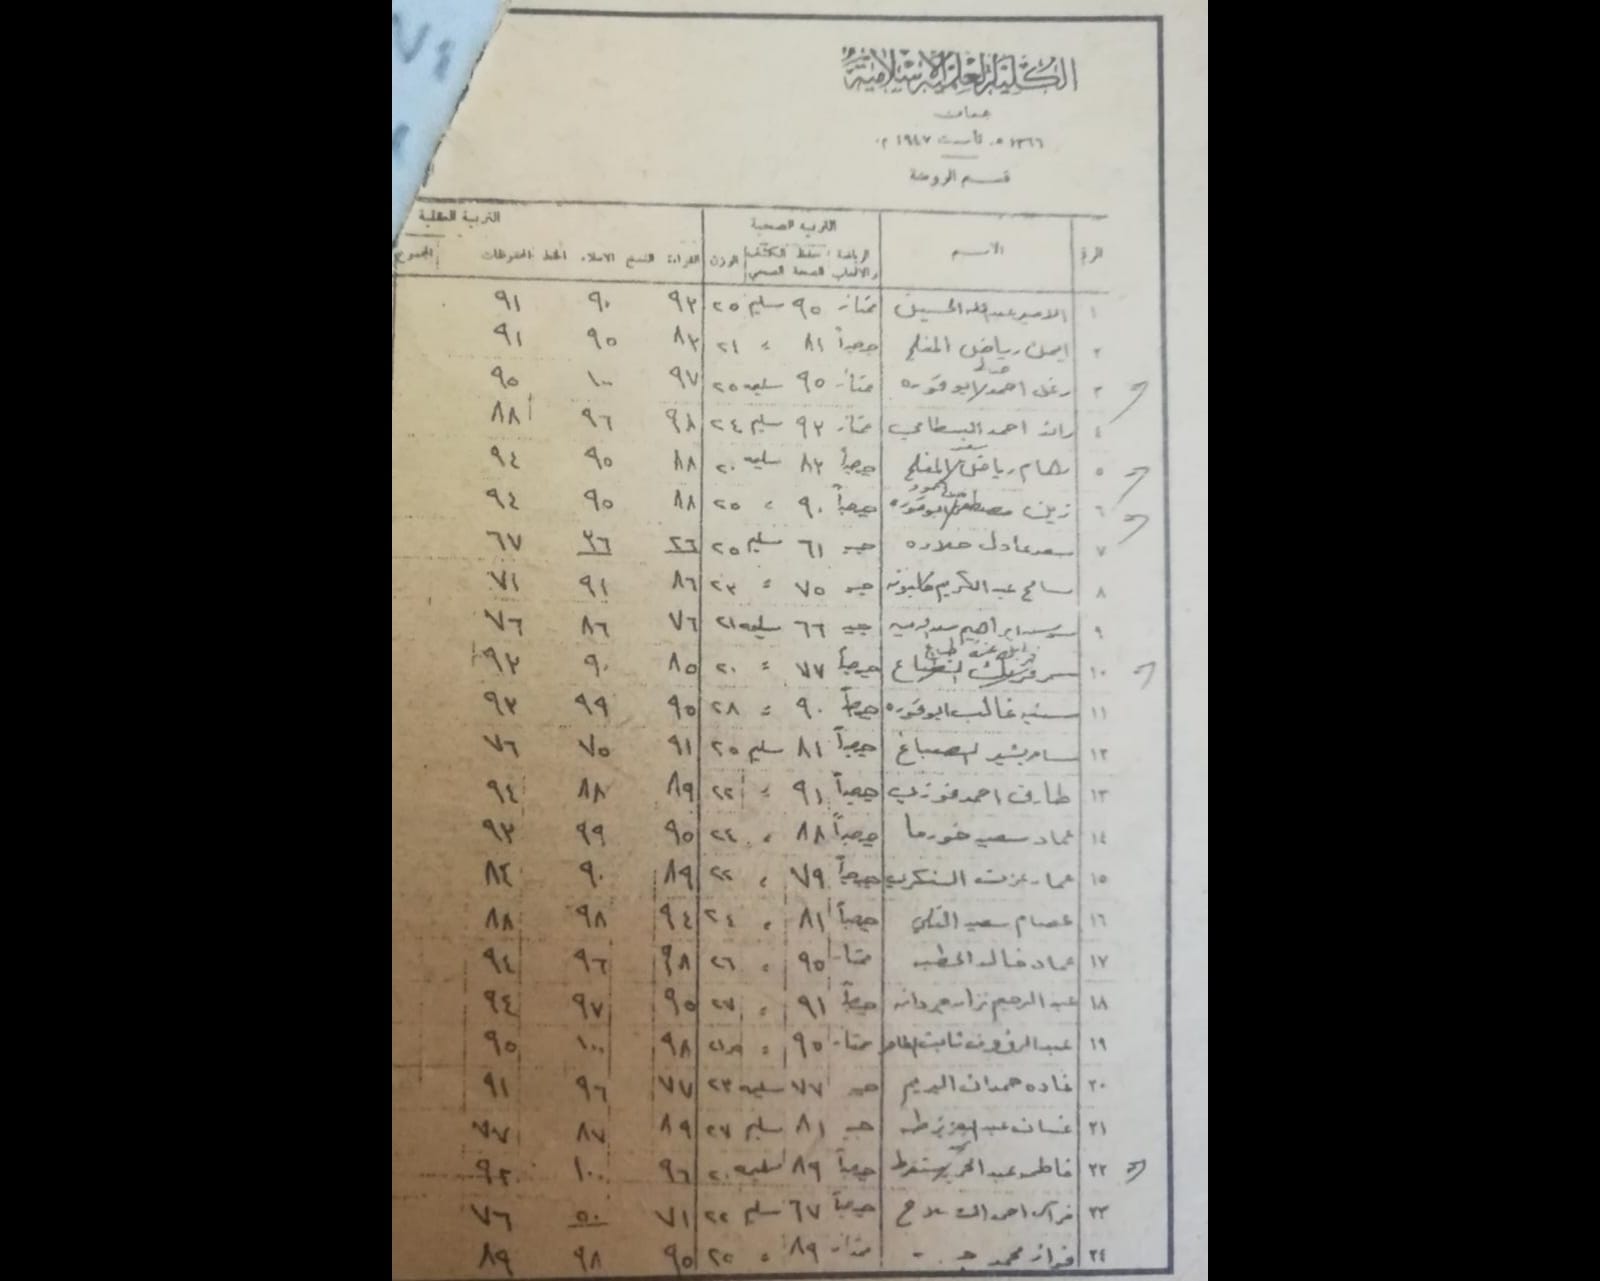 الكلية العلمية الاسلامية
عمان
١٣٦٦ هـ تأسست ١٩٤٧ م.
قسم الروضة
التربية الصحية التربية العقلية
الرقم الاسم الرياضة والالعاب حفظ الصحة الكشف الصحي الوزن القراءة النسخ الاملاء الخط المحفوظات المجموع
١ الامير عبدالله الحسين ممتاز ٩٥ سليم ٢٥ ٩٣ ٩٠ ٩١
٢ ايمن رياض المفلح جيدجداً ٨١ " ٢١ ٨٣ ٩٥ ٩١
٣ رغد احمد ابوقوره ممتاز ٩٥ سليمه ٢٥ ٩٧ ١٠٠ ٩٥
٤ رائد احمد البسطامي ممتاز ٩٣ سليم ٢٤ ٩٨ ٩٦ ٨٨
٥ رهام رياض المفلح جيدجداً ٨٣ سليمه ٢٠ ٨٨ ٩٥ ٩٤
٦ زين مصطفى ابوقوره جيدجداً ٩٠ " ٢٥ ٨٨ ٩٥ ٩٤
٧ سعد عادل حلاوه جيد ٦١ سليم ٢٥ ٢٦ ٣٦ ٦٧
٨ سامح عبد الكريم جيد ٧٥ " ٢٣ ٨٦ ٩١ ٧١
٩ ابراهيم جيد ٦٦ سليمه ٢١ ٧٦ ٨٦ ٧٦
١٠ الطباع جيدجداً ٧٧ " ٢٠ ٨٥ ٩٠ ٩٣
١١ غالب ابوقوره جيدجداً ٩٠ " ٢٨ ٩٥ ٩٩ ٩٣
١٢ سامر بشير الصباغ جيدجداً ٨١ سليم ٢٥ ٩١ ٧٥ ٧٦
١٣ طارق احمد فوزي جيدجداً ٩١ " ٢٢ ٨٩ ٨٨ ٩٤
١٤ عماد سعيد خورما جيدجداً ٨٨ " ٢٤ ٩٥ ٩٩ ٩٣
١٥ عمار عزت السكري جيدجداً ٧٩ " ٢٢ ٨٩ ٩٠ ٨٤
١٦ عصام سعيد التلي جيدجداً ٨١ " ٢٤ ٩٤ ٩٨ ٨٨
١٧ عماد خالد الخطيب ممتاز ٩٥ " ٢٦ ٩٨ ٩٦ ٩٤
١٨ عبد الرحيم نزار جردانه جيدجداً ٩١ " ٢٧ ٩٥ ٩٧ ٩٤
١٩ عبد الرؤوف ثابت الطاهر ممتاز ٩٥ " ٩٨ ١٠٠ ٩٥
٢٠ غاده حمدان جيد ٧٧ سليمه ٢٣ ٧٧ ٩٦ ٩١
٢١ غسان عبد العزيز طه جيد ٨١ سليم ٢٧ ٨٩ ٨٧ ٧٧
٢٢ فاطمه عبد جيدجداً ٨٩ سليمه ٢٠ ٩٦ ١٠٠ ٩٢
٢٣ فراس احمد جيدجداً ٦٧ سليم ٢٢ ٧١ ٥٠ ٧٦
٢٤ فواز محمد ممتاز ٨٩ " ٢٥ ٩٥ ٩٨ ٨٩